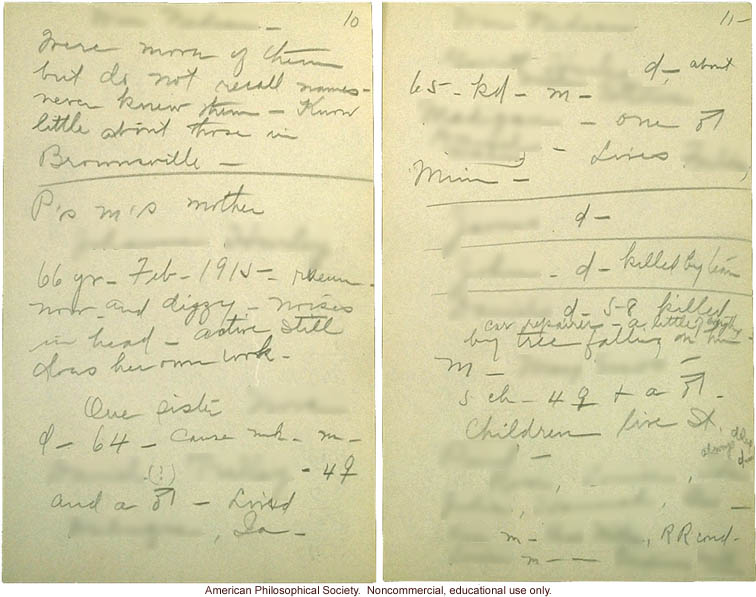 10
were more of them
but do not recall names -
never knew them - Know
little about those in
Brownsville -
P's m's mother
66 yr - Feb - 1915 - rheum -
now and dizzy - noises
in head - active still
does her own work -
One sister
d - 64 - cause unk - m -
(?) - 4♀
and a ♂ - Lived
, Ia -
11 -
d - about
65 - kd - m -
- one ♂
- Lives
Minn -
d -
- d - killed by train
d - 58 killed
car repairer - a little
by tree falling on him -
m -
5 ch - 4♀ + a ♂ -
Children live St.
m -
, RR cond -
m -
American Philosophical Society. Noncommercial, educational use only.